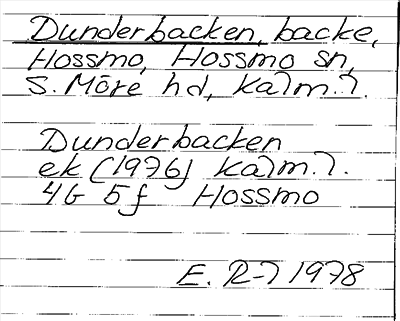 Dunderbacken, backe,
Hossmo, Hossmo sn,
S. Möre hd, Kalm. l.
Dunderbacken
ek (1976) Kalm. l.
4G 5f Hossmo
E. R-l 1978